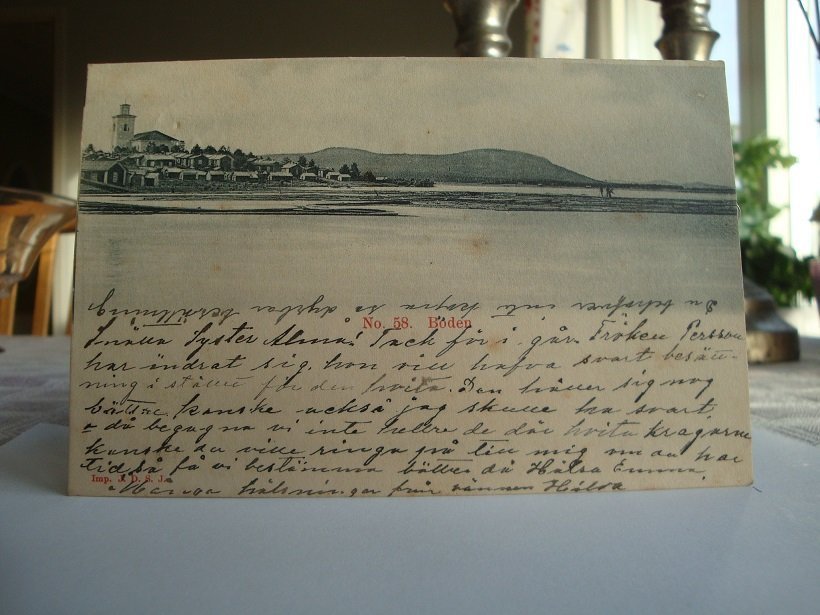 Du behöfver inte köpa så dyrbar beställning
No. 58. Boden
Snälla Syster Alma! Tack för i går. Fröken Persson
har ändrat sig, hon vill hafva svart besätt-
ning i stället för den hvita. Den håller sig nog
bättre, kanske också jag skulle ha svart,
å då begagna vi inte heller de där hvita kragarne
kanske du ville ringa på till mig om du har
tid så få vi bestämma bättre då Hälsa Emma,
Imp. J. D. S. J.
Många hälsningar från vännen Hilda